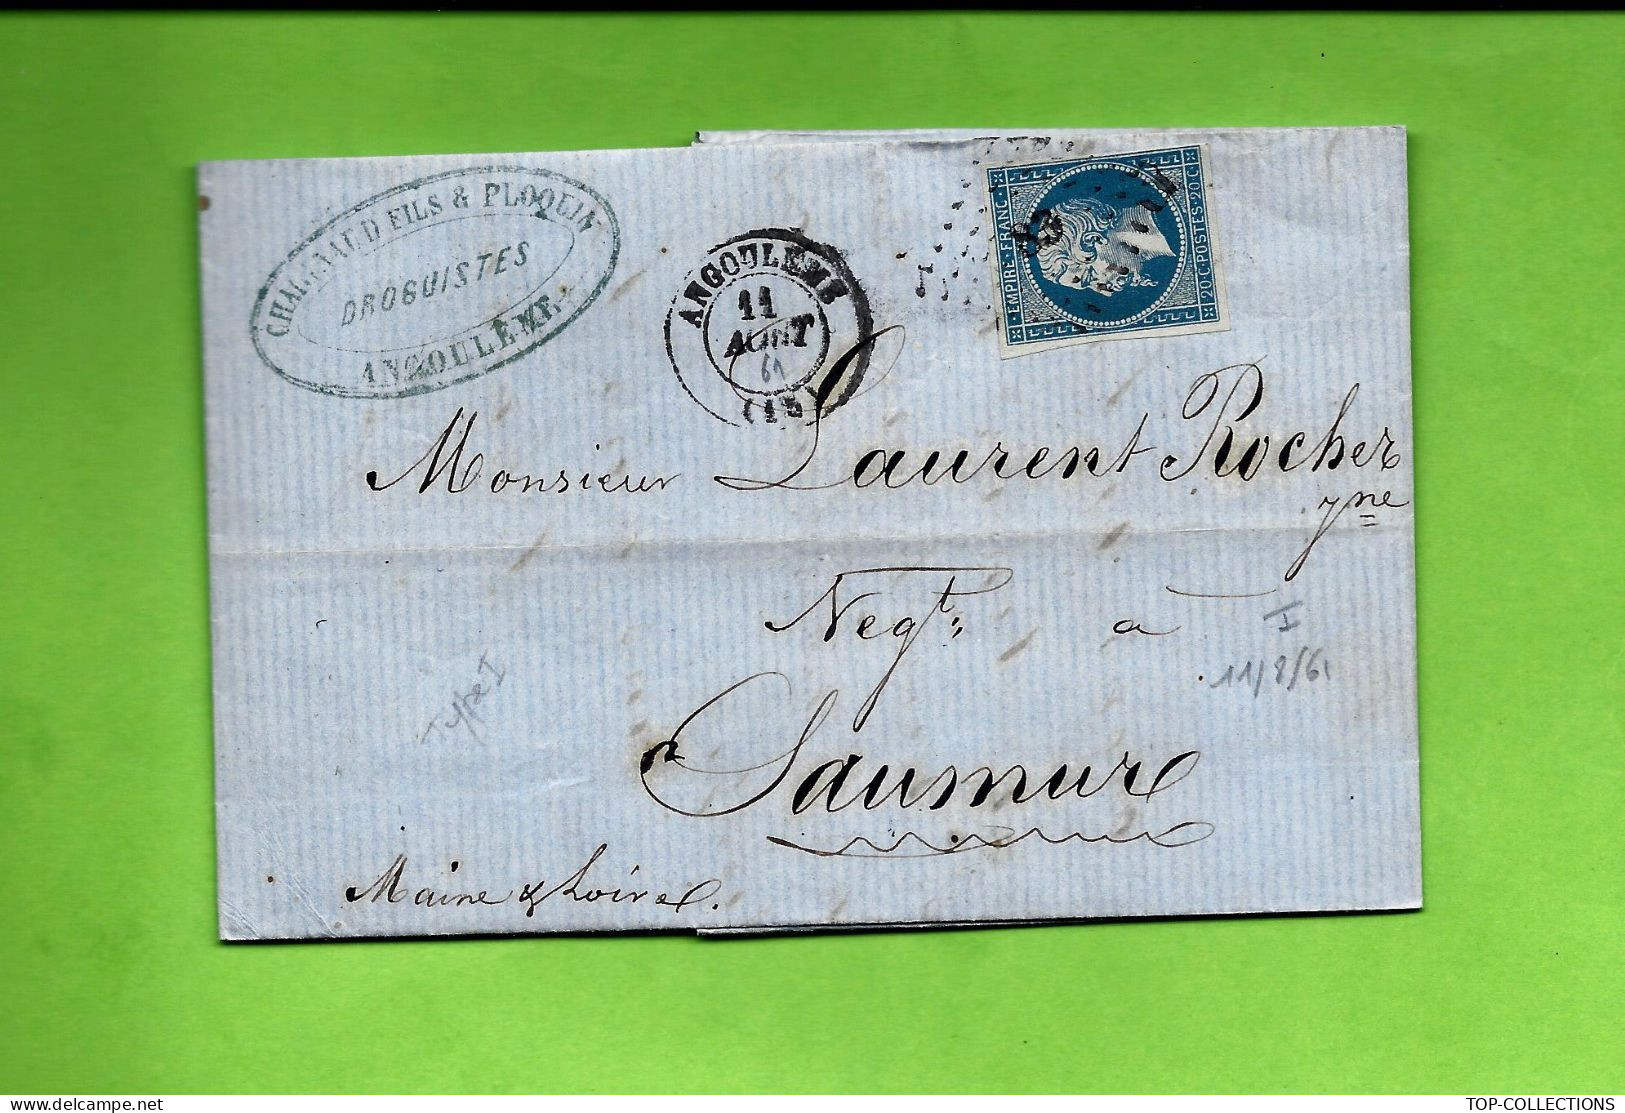 FILS & PLOQUIN
DROGUISTES
ANGOULÊME
ANGOULEME
11
AOUT
61
EMPIRE·FRANC·
20·C·POSTES·20·C·
83
Monsieur Laurent Rocher
jne
Negt. à
Saumur
Maine & Loire.
Type I
I
11/8/61
TOP-COLLECTIONS